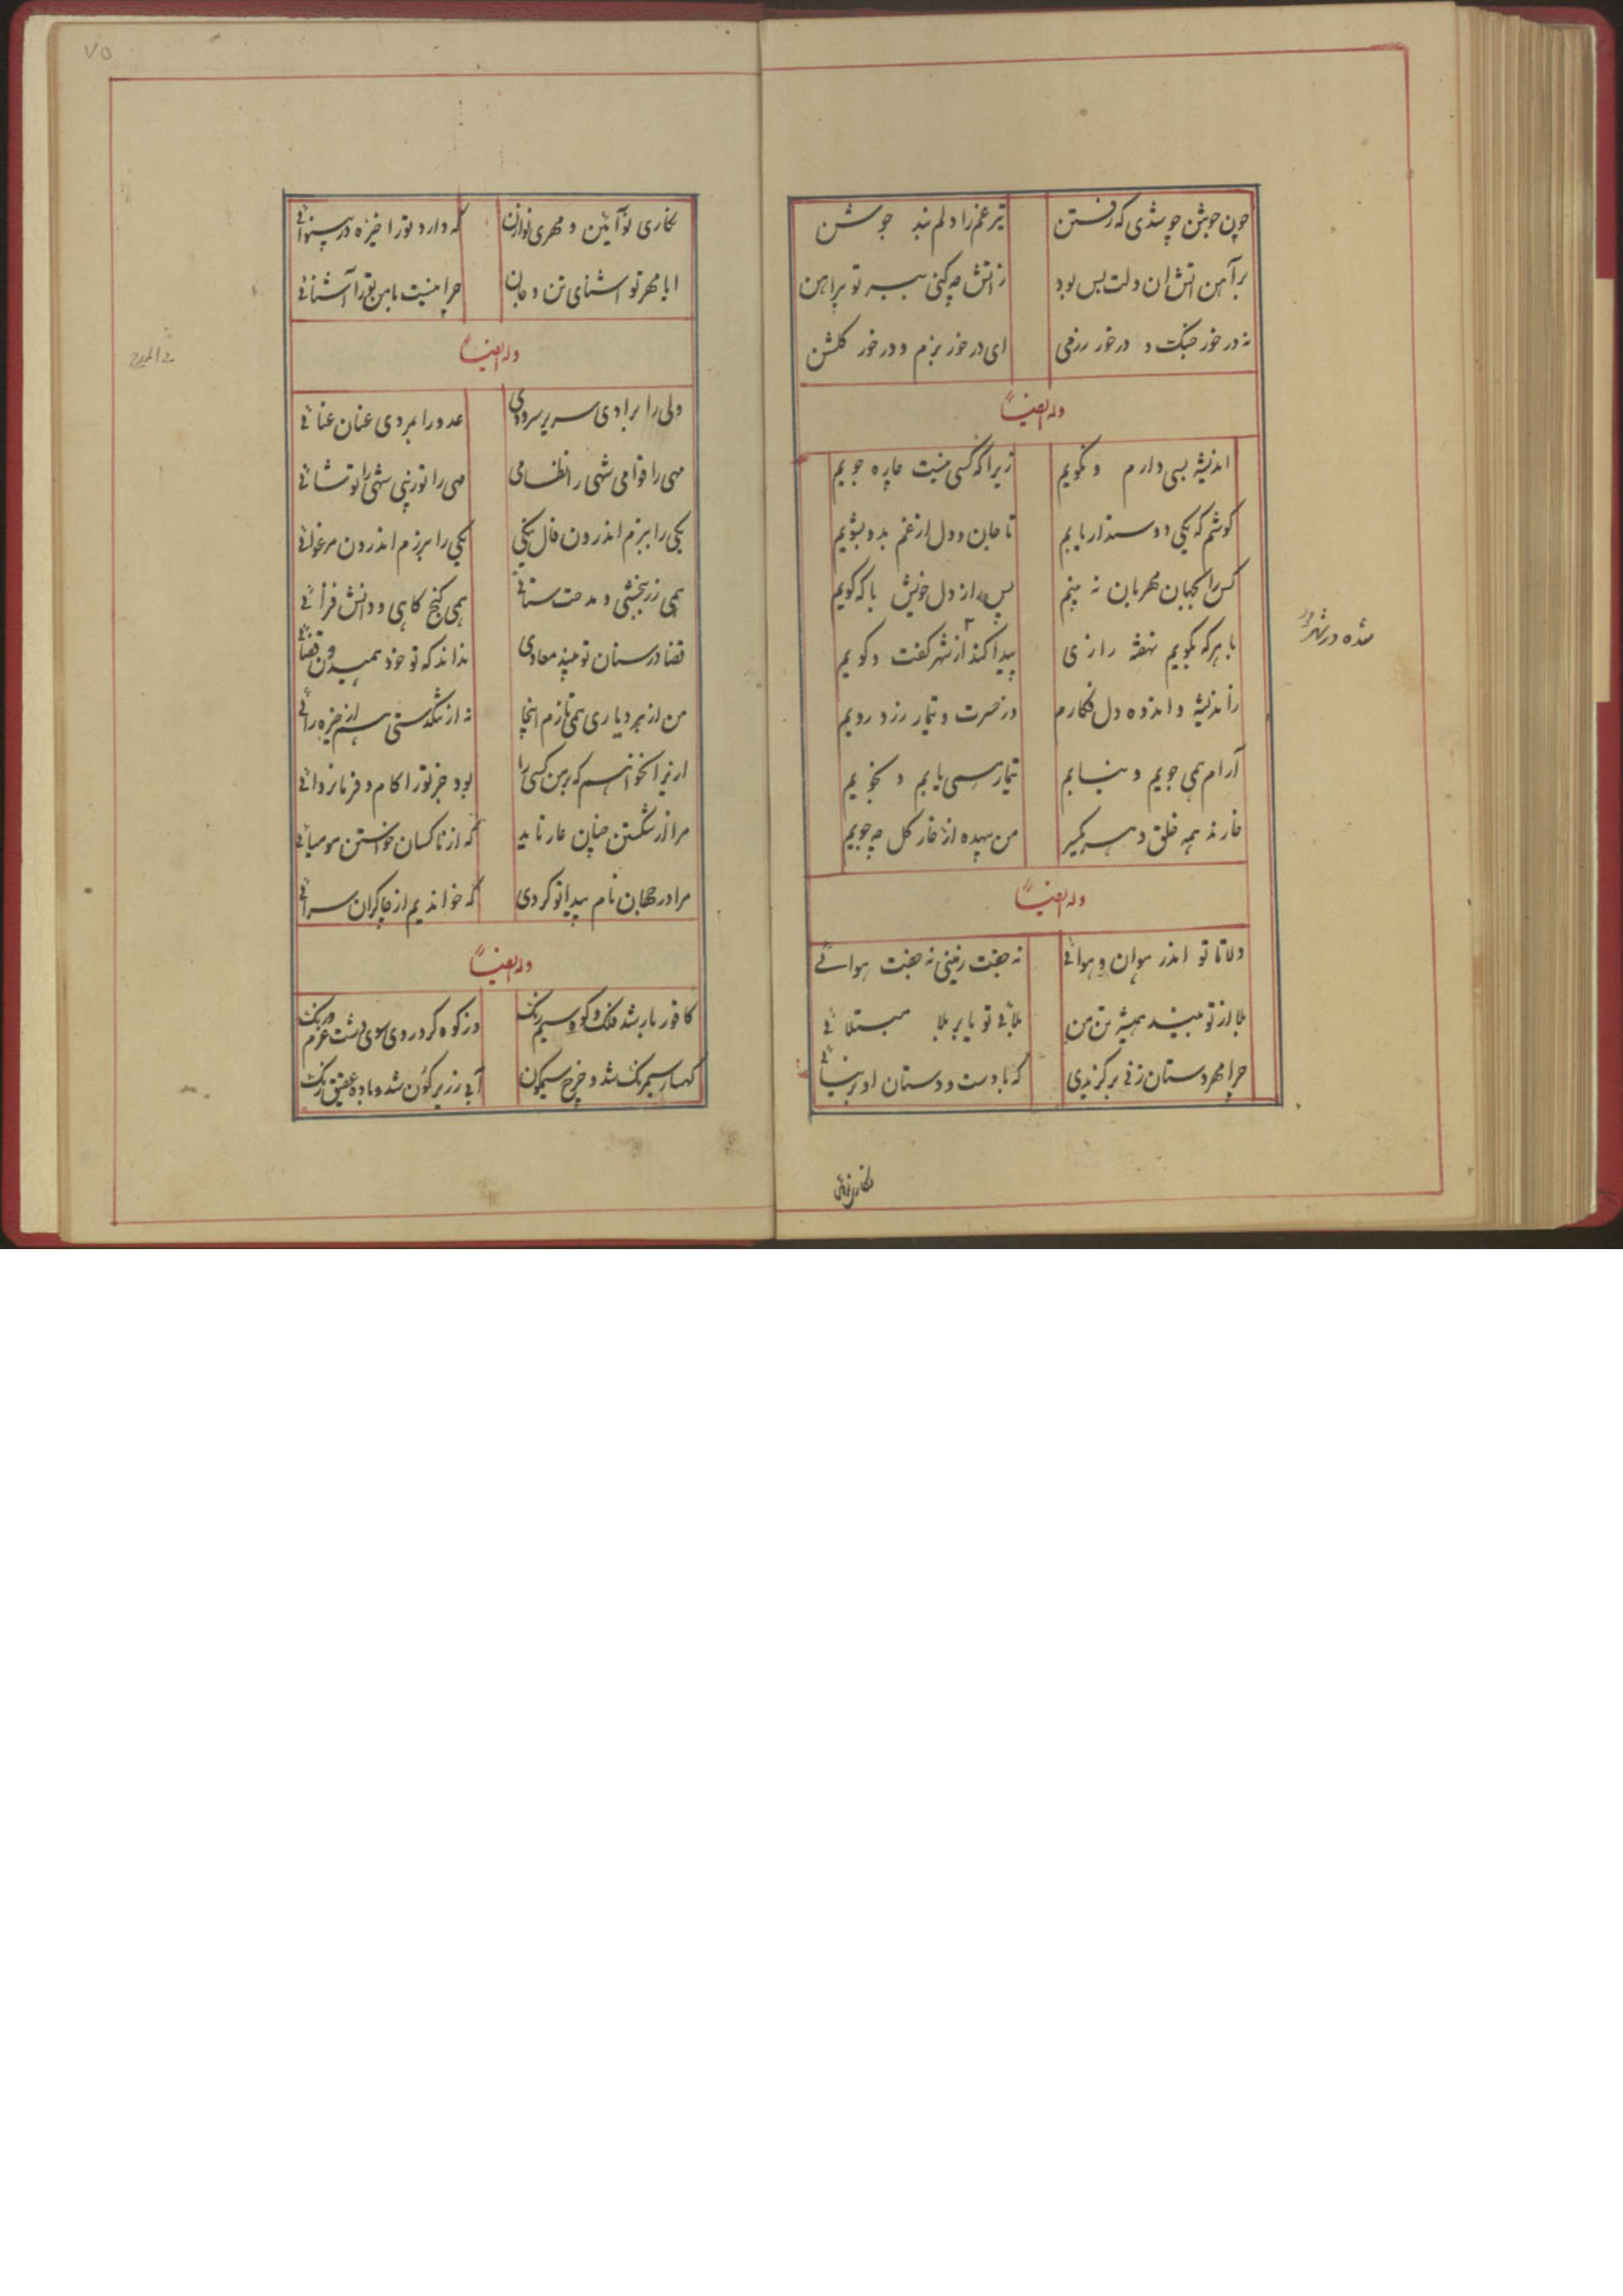 چون جوشن چو شدی که رفتن تیر غم را دلم بند جوشن
بر آهن آتش آن دلت بس بود ز آتش چه کنی ببر تو پیراهن
نه در خور جنگ و در خور رزمی ای در خور بزم و در خور گلشن
وله ایضاً
اندیشه بسی دارم و نگویم زیرا که کسی نیست چاره جویم
کوشم که یکی دوستدار یابم تا جان و دل از غم بدو بشویم
کس را بجهان مهربان نه بینم پس راز دل خویش با که گویم
با هر که بگویم نهفته رازی پیدا کند از شهر گفت و گویم
ز اندیشه و اندوه دل فکارم وز حسرت و تیمار زرد رویم
آرام همی جویم و نیابم تیمار همی یابم و نجویم
خارند همه خلق دهر یکسر من بیهده از خار گل چه جویم
وله ایضاً
دلا تا تو اندر هوان و هوائی نه جفت زمینی نه جفت هوائی
بلا از تو بیند همیشه تن من بلائی تو یا بر بلا مبتلائی
چرا مهر دستان زنی برگزیدی که با دست و دستان او بر نیائی
شده در شهر
۷۵
نگاری نو آیین و مهری نوازن که دارد تو را خیره در بینوائی
ایا مهر تو آشنای تن و جان چرا نیست با من تو را آشنائی
وله ایضاً
فی المدح
ولی را برادی سریر سروری عدو را بمردی عنان عنائی
مهی را قوامی شهی را نظامی مهی را تو زینی شهی را تو شائی
یکی را ببزم اندرون فال نیکی یکی را برزم اندرون مرغوائی
همی زر بخشی و مدحت ستانی همی گنج کاهی و دانش فزائی
قضا در سنان تو بیند معادی نداند که تو خود همیدون قضائی
من از بهر دیاری همی نازم اینجا نه از تنگدستی هم از خیره رائی
ازیرا نخواهم که بر من کسی را بود جز تو را کام و فرمانروائی
مرا از شکستن چنان عار ناید که از ناکسان خواستن مومیائی
مرا در جهان نام پیدا تو کردی که خواندیم از چاکران سرائی
وله ایضاً
کافور بار شد فلک و کوه سیم رنگ وز کوه کرد روی سوی دشت غرم و رنگ
کهسار سیمرنگ شد و چرخ سیمگون آبی زریر گون شد و باده عقیق رنگ